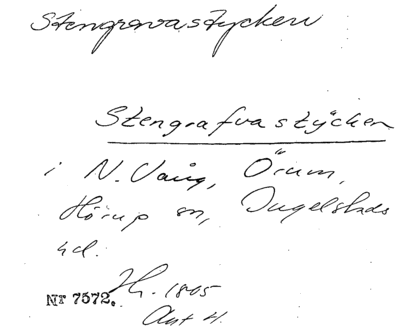 Stengravastycken
Stengrafvastycken
i N. Vång, Örum,
Hörup sn, Ingelstads
hd.
Nr 7572. Jh. 1805
Akt 4.